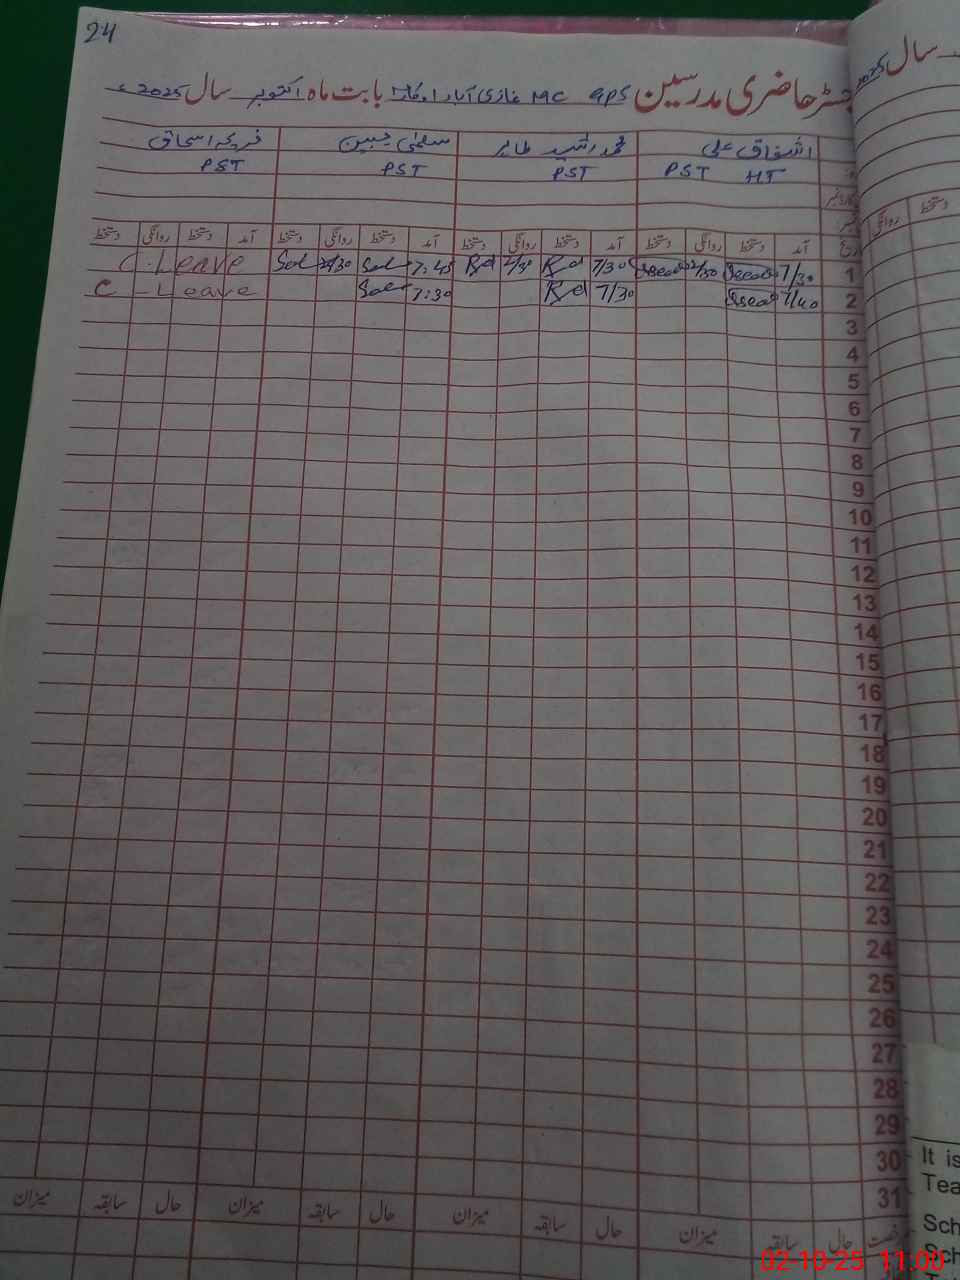 24
رجسٹر حاضری مدرسین GPS MC غازی آباد اوکاڑا بابت ماہ اکتوبر سال 2025ء
سال 2025
اشفاق علی محمد رشید طاہر سلمٰی جبین فریحہ اسحاق
PST HT PST PST PST
دستخط روانگی
آمد دستخط روانگی دستخط آمد دستخط روانگی دستخط آمد دستخط روانگی دستخط آمد دستخط روانگی دستخط
1 7/30 2/30 7/30 Rd 2/30 Rd 7:45 Sal 2/30 Sal C. Leave
2 7/40 7/30 Rd 7:30 Sal C - Leave
3
4
5
6
7
8
9
10
11
12
13
14
15
16
17
18
19
20
21
22
23
24
25
26
27
28
29
30
31
رخصت حال سابقہ میزان حال سابقہ میزان حال سابقہ میزان حال سابقہ میزان
It is
Tea
Sch
Sch
02-10-25 11:00